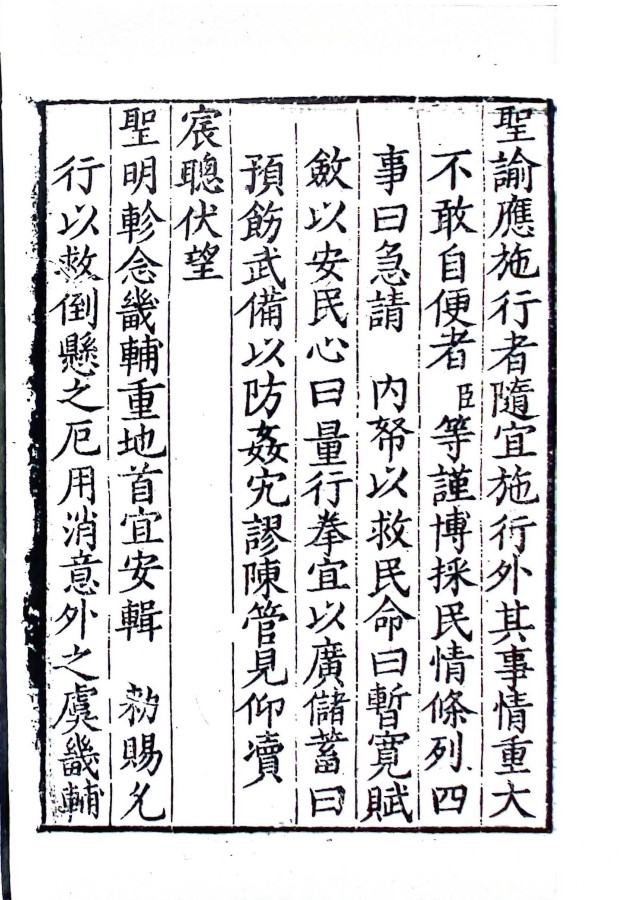 聖諭應施行者隨宜施行外其事情重大
不敢自便者臣等謹博採民情條列四
事曰急請　內帑以救民命曰暫寬賦
斂以安民心曰量行拳宜以廣儲蓄曰
預飭武備以防姦宄謬陳管見仰瀆
宸聰伏望
聖明軫念畿輔重地首宜安輯　勑賜允
行以救倒懸之厄用消意外之虞畿輔